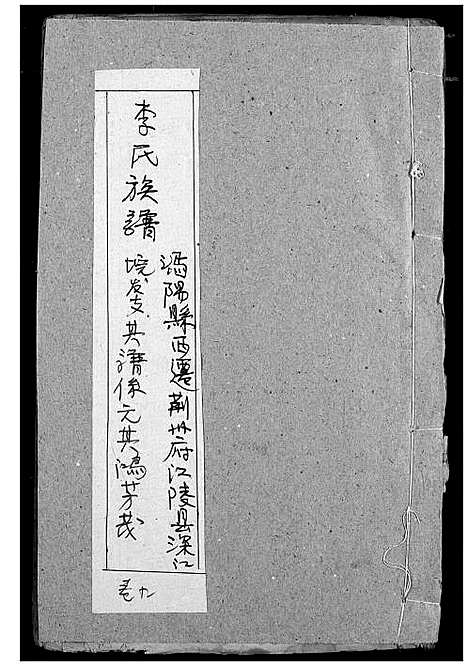 李氏族譜
沔陽縣西遷荆州府江陵县深江
垸发支其譜係元其鴻芳茂
卷九